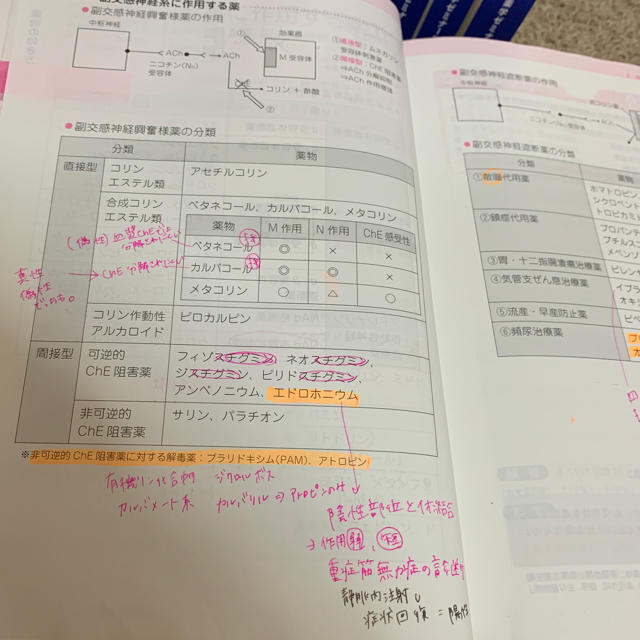 副交感神経系に作用する薬
●副交感神経興奮様薬の作用
中枢神経
効果器
ACh
ACh
ニコチン(NN)
受容体
M 受容体
コリン + 酢酸
①
②
①直接型：ムスカリン
受容体刺激薬
②間接型：ChE 阻害薬
⇒ACh 分解抑制
⇒ACh 作用増強
●副交感神経興奮様薬の分類
分類
薬物
直接型
コリン
エステル類
アセチルコリン
合成コリン
エステル類
ベタネコール、カルバコール、メタコリン
薬物 M 作用 N 作用 ChE 感受性
ベタネコール ◎ × ×
カルバコール ◎ ◎ ×
メタコリン ○ △ ○
コリン作動性
アルカロイド
ピロカルピン
間接型
可逆的
ChE 阻害薬
フィゾスチグミン、ネオスチグミン、
ジスチグミン、ピリドスチグミン、
アンベノニウム、エドロホニウム
非可逆的
ChE 阻害薬
サリン、パラチオン
※非可逆的 ChE 阻害薬に対する解毒薬：プラリドキシム(PAM)、アトロピン
真性
偽性
どっちも。
有機リン化合物 ジクロルボス
カルバメート系 カルバリル
陰性部位と体結合
→作用
重症筋無力症の診断
静脈内注射し
症状回復 = 陽性
●副交感神経遮断薬の作用
中枢神経
ニコチン(NN)受容体
●副交感神経遮断薬の分類
分類
薬物
①散瞳代用薬
ホマトロピン
シクロペント
トロピカミ
②鎮痙代用薬
プロパンテ
ブチルス
メペンゾ
③胃・十二指腸潰瘍治療薬
ピレンゼ
④気管支ぜん息治療薬
イプラ
オキ
⑤流産・早産防止薬
ピペ
⑥頻尿治療薬
プ
オ